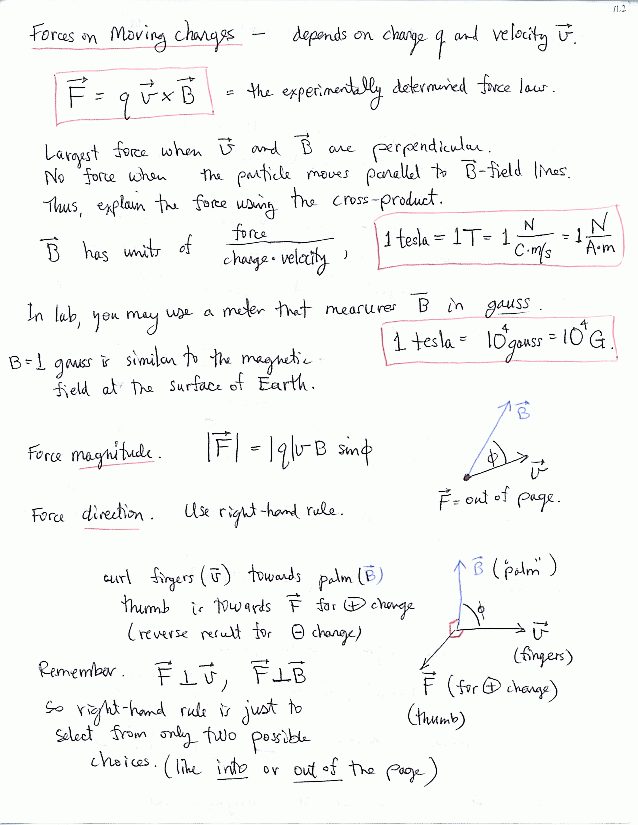 11.2
Forces on Moving charges — depends on charge q and velocity v⃗.
F⃗ = q v⃗ × B⃗ = the experimentally determined force law.
Largest force when v⃗ and B⃗ are perpendicular.
No force when the particle moves parallel to B⃗-field lines.
Thus, explain the force using the cross-product.
B⃗ has units of force / charge • velocity , 1 tesla = 1T = 1 N / C·m/s = 1 N / A·m
In lab, you may use a meter that measures B⃗ in gauss.
1 tesla = 10⁴ gauss = 10⁴ G.
B = 1 gauss is similar to the magnetic
field at the surface of Earth.
Force magnitude. |F⃗| = |q|vB sinϕ
B⃗
ϕ
v⃗
F⃗ = out of page.
Force direction. Use right-hand rule.
curl fingers (v⃗) towards palm (B⃗)
thumb is towards F⃗ for ⊕ charge
(reverse result for ⊖ charge)
B⃗ ("palm")
ϕ
v⃗
(fingers)
F⃗ (for ⊕ charge)
(thumb)
Remember. F⃗ ⊥ v⃗, F⃗ ⊥ B⃗
so right-hand rule is just to
select from only two possible
choices. (like into or out of the page)